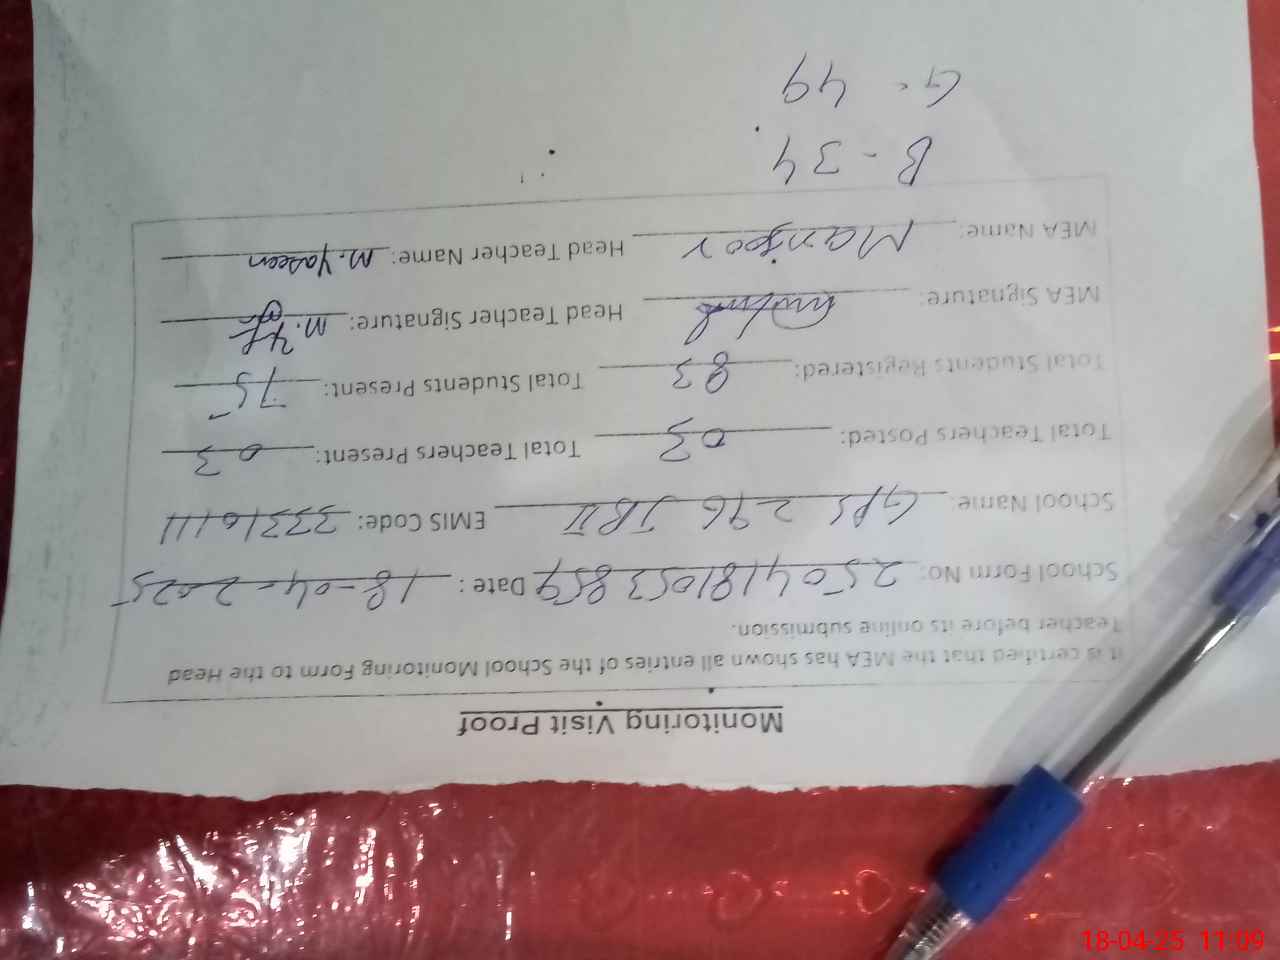 Monitoring Visit Proof
It is certified that the MEA has shown all entries of the School Monitoring Form to the Head
Teacher before its online submission.
School Form No: 2504181053859 Date: 18-04-2025
School Name: GPS 296 JB II EMIS Code: 33310111
Total Teachers Posted: 03 Total Teachers Present: 03
Total Students Registered: 83 Total Students Present: 75
MEA Signature: Head Teacher Signature:
MEA Name: Manzoor Head Teacher Name: M. Yaseen
B - 34
G - 49
18-04-25 11:09